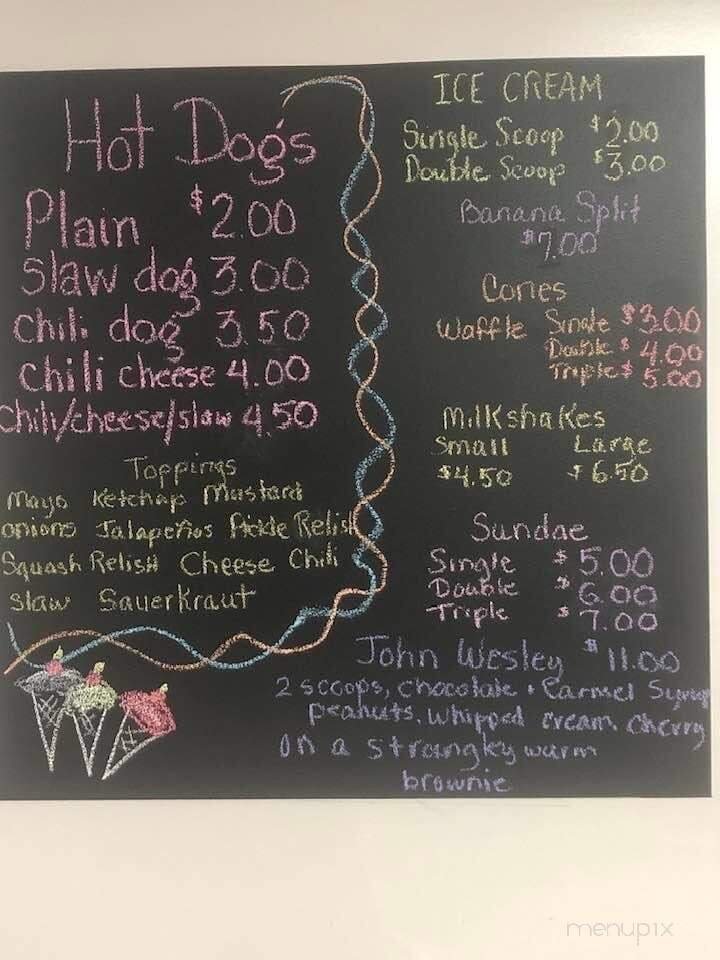 Hot Dogs
Plain $2.00
Slaw dog 3.00
chili dog 3.50
chili cheese 4.00
chili/cheese/slaw 4.50
Toppings
Mayo Ketchap Mustard
onions Jalapeños Pickle Relish
Squash Relish Cheese Chili
Slaw Sauerkraut
ICE CREAM
Single Scoop $2.00
Double Scoop $3.00
Banana Split
$7.00
Cones
Waffle Single $3.00
Double $4.00
Triple $5.00
Milkshakes
Small Large
$4.50 $6.50
Sundae
Single $5.00
Double $6.00
Triple $7.00
John Wesley $11.00
2 scoops, chocolate + Carmel Syrup
peanuts, whipped cream, cherry
on a strangley warm
brownie
menupix